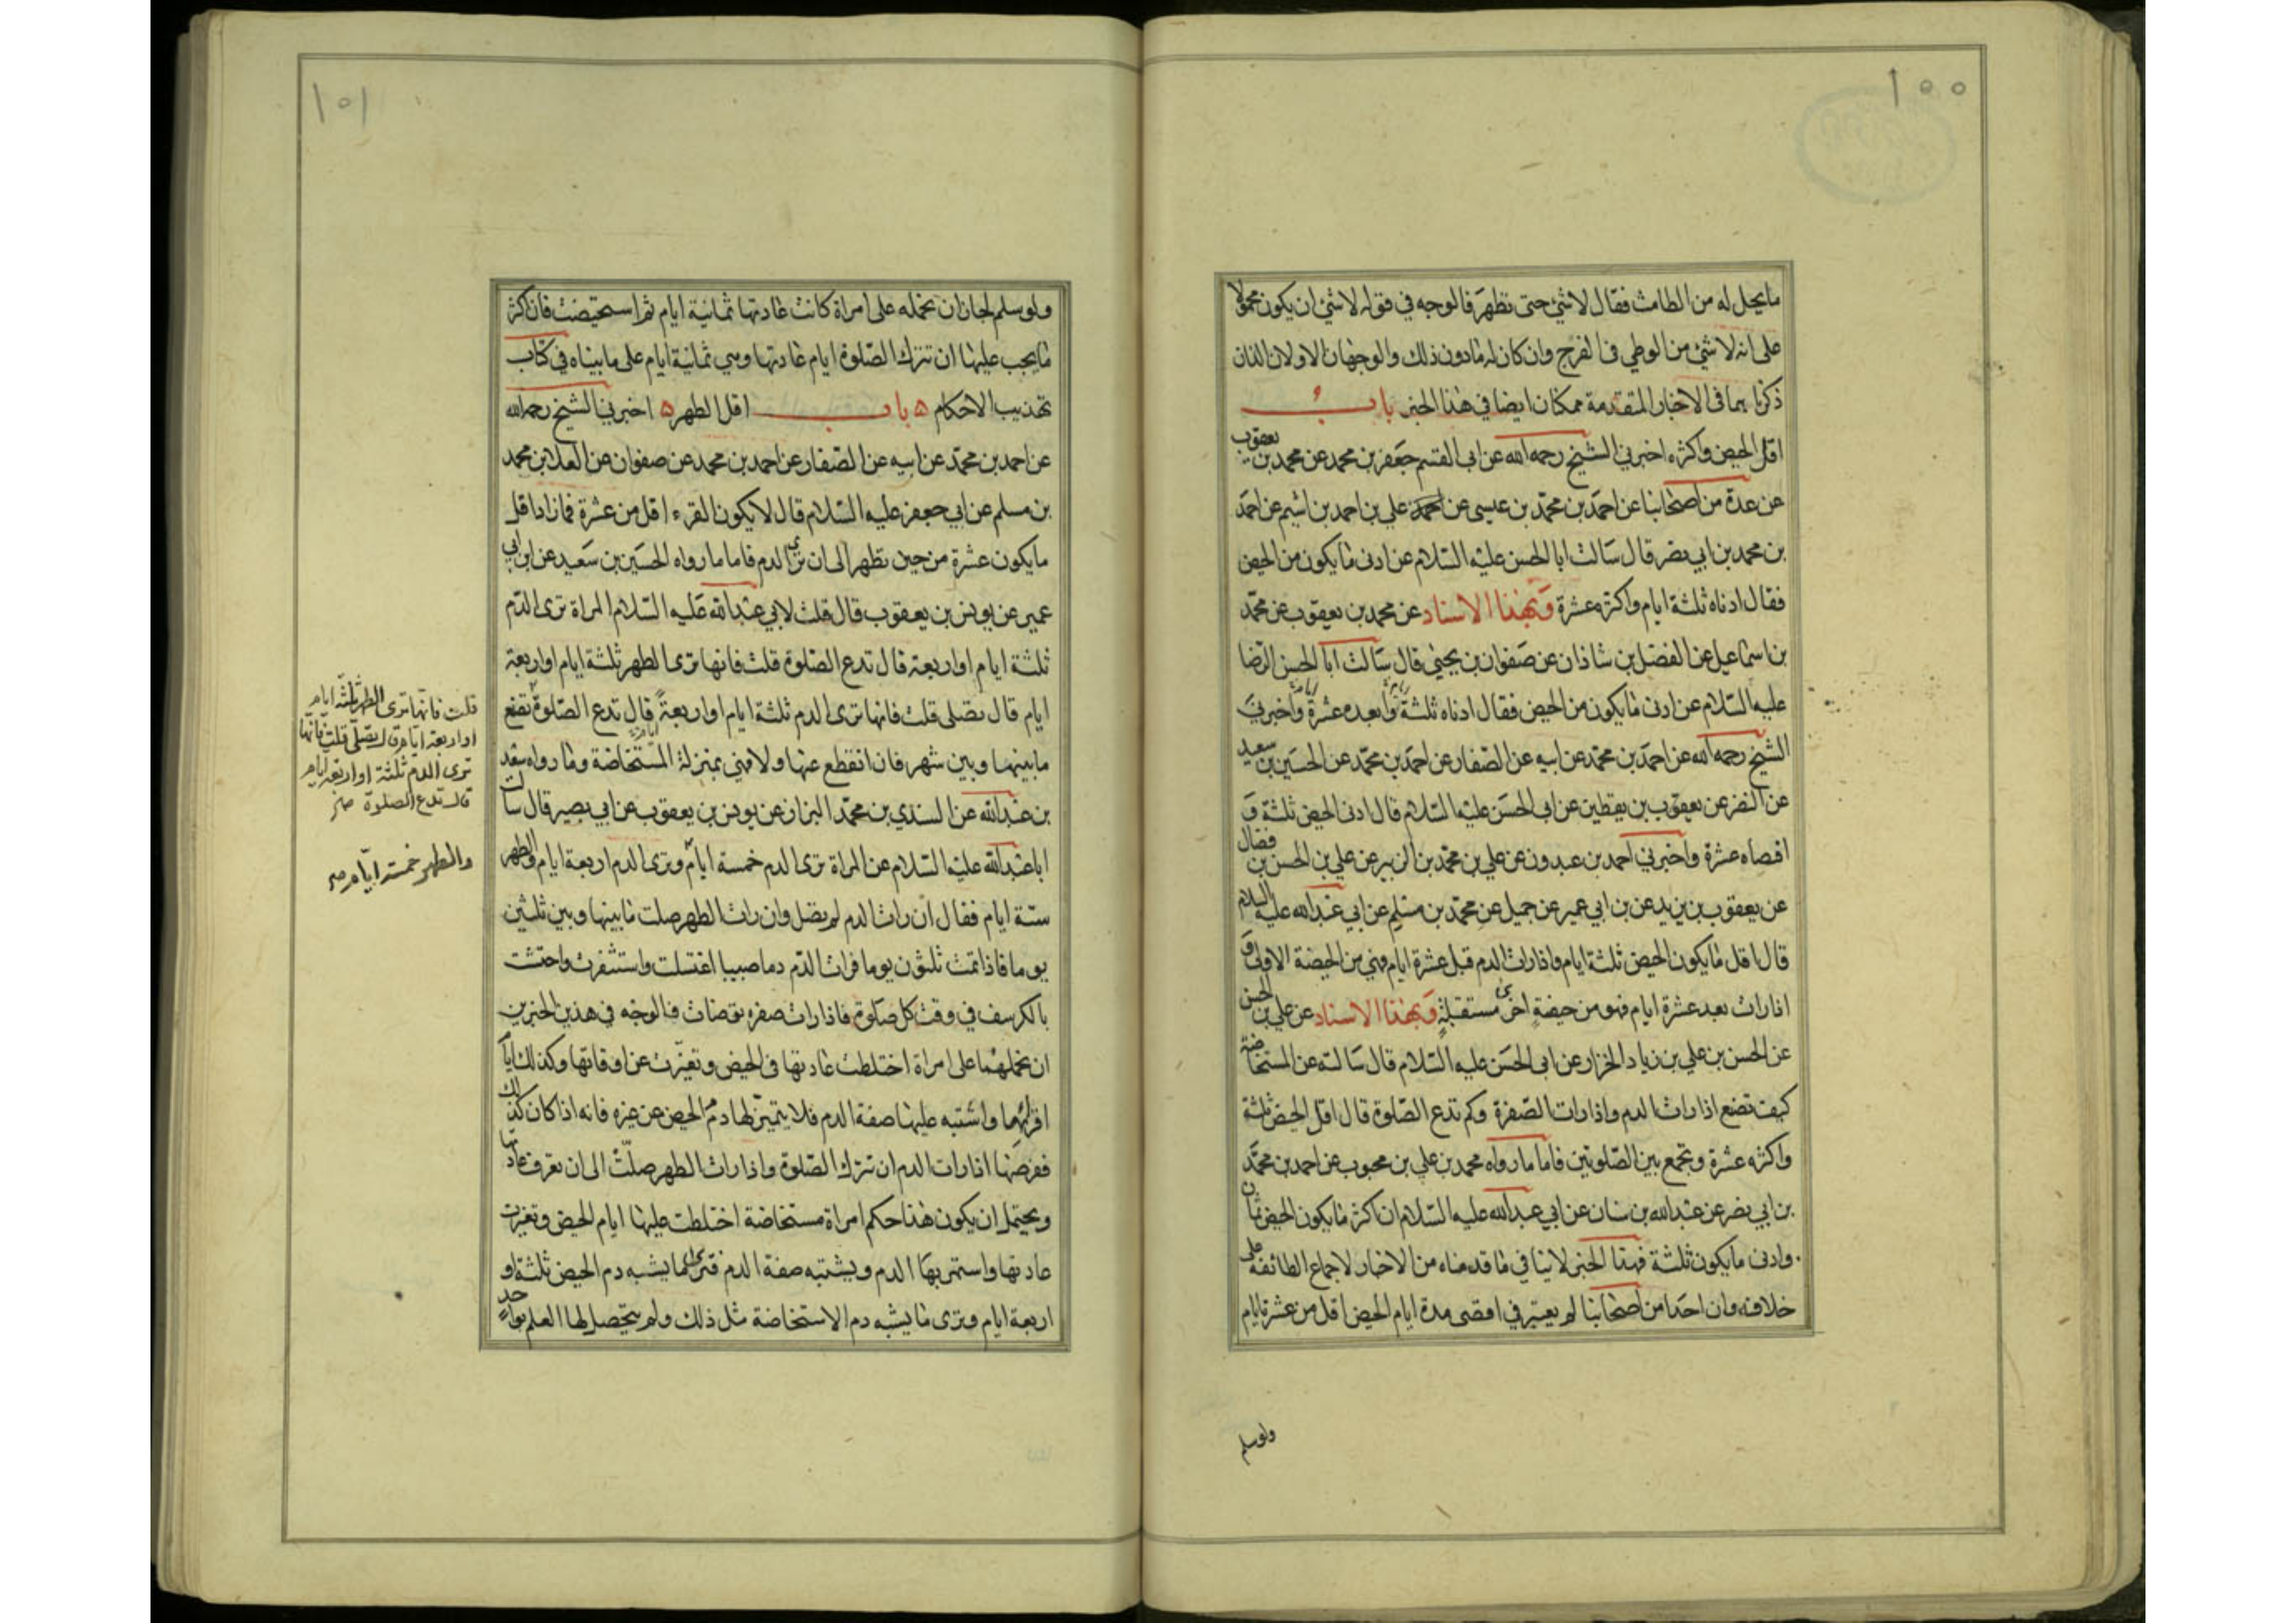 ١٠٠
ما يحل له من الطامث فقال لا شئ حتى تطهر فالوجه في قوله لا شئ ان يكون محمولا
على انه لا شئ من الوطي في الفرج وان كان له ما دون ذلك والوجهان الاولان اللذان
ذكرنا هما في الاخبار المتقدمة ممكنان ايضا في هذا الخبر باب
اقل الحيض واكثره اخبرني الشيخ رحمه الله عن ابي القسم جعفر بن محمد عن محمد بن يعقوب
عن عدة من اصحابنا عن احمد بن محمد بن عيسى عن علي بن احمد بن اشيم عن احمد
بن محمد بن ابي نصر قال سالت ابا الحسن عليه السلام عن ادنى ما يكون من الحيض
فقال ادناه ثلثة ايام واكثره عشرة وبهذا الاسناد عن محمد بن يعقوب عن محمد
بن اسماعيل عن الفضل بن شاذان عن صفوان بن يحيى قال سالت ابا الحسن الرضا
عليه السلام عن ادنى ما يكون من الحيض فقال ادناه ثلثة وابعده عشرة واخبرني
الشيخ رحمه الله عن احمد بن محمد عن ابيه عن الصفار عن احمد بن محمد عن الحسين بن سعيد
عن النضر عن يعقوب بن يقطين عن ابي الحسن عليه السلام قال ادنى الحيض ثلثة و
اقصاه عشرة واخبرني احمد بن عبدون عن علي بن محمد بن الزبير عن علي بن الحسن بن فضال
عن يعقوب بن يزيد عن بن ابي عمير عن جميل عن محمد بن مسلم عن ابي عبدالله عليه السلام
قال اقل ما يكون الحيض ثلثة ايام واذا رات الدم قبل عشرة ايام فهي من الحيضة الاولى و
اذا رات بعد عشرة ايام فهو من حيضة اخرى مستقبلة وبهذا الاسناد عن علي بن الحسن
عن الحسن بن علي بن زياد الخزاز عن ابي الحسن عليه السلام قال سالته عن المستحاضة
كيف تصنع اذا رات الدم واذا رات الصفرة وكم تدع الصلوة قال اقل الحيض ثلثة
واكثره عشرة وتجمع بين الصلوتين فاما ما رواه محمد بن علي بن محبوب عن احمد بن محمد
بن ابي نصر عن عبدالله بن سنان عن ابي عبدالله عليه السلام ان اكثر ما يكون الحيض ثمان
وادنى ما يكون ثلثة فهذا الخبر لا ينافي ما قدمناه من الاخبار لاجماع الطائفة على
خلافه وان احدا من اصحابنا لم يعتبر في اقصى مدة ايام الحيض اقل من عشرة ايام
ولو سلم
١٠١
ولو سلم لجاز ان نحمله على امراة كانت عادتها ثمانية ايام ثم استحيضت فان اكثر
ما يجب عليها ان تترك الصلوة ايام عادتها وهي ثمانية ايام على ما بيناه في كتاب
تهذيب الاحكام ه باب اقل الطهر ه اخبرني الشيخ رحمه الله
عن احمد بن محمد عن ابيه عن الصفار عن احمد بن محمد عن صفوان عن العلا بن محمد
بن مسلم عن ابي جعفر عليه السلام قال لا يكون القرء اقل من عشرة فما زاد اقل
ما يكون عشرة من حين تطهر الى ان ترى الدم فاما ما رواه الحسين بن سعيد عن ابن ابي
عمير عن يونس بن يعقوب قال قلت لابي عبدالله عليه السلام المراة ترى الدم
ثلثة ايام او اربعة قال تدع الصلوة قلت فانها ترى الطهر ثلثة ايام او اربعة
ايام قال تصلى قلت فانها ترى الدم ثلثة ايام او اربعة قال تدع الصلوة تصنع
ما بينها وبين شهر فان انقطع عنها والا فهي بمنزلة المستحاضة وما رواه سعد
بن عبدالله عن السندي بن محمد البزاز عن يونس بن يعقوب عن ابي بصير قال سالت
ابا عبدالله عليه السلام عن المراة ترى الدم خمسة ايام وترى الدم اربعة ايام والطهر
ستة ايام فقال ان رات الدم لم تصل وان رات الطهر صلت ما بينها وبين ثلثين
يوما فاذا تمت ثلثون يوما فرات الدم دما صبيبا اغتسلت واستثفرت واحتشت
بالكرسف في وقت كل صلوة فاذا رات صفرة توضات فالوجه في هذين الخبرين
ان نحملهما على امراة اختلطت عادتها في الحيض وتغيرت عن اوقاتها وكذلك ايام
اقرائها واشتبه عليها صفة الدم فلا يتميز لها دم الحيض عن غيره فانه اذا كان كذلك
ففرضها اذا رات الدم ان تترك الصلوة واذا رات الطهر صلت الى ان تعرف عادتها
ويحتمل ان يكون هذا حكم امراة مستحاضة اختلطت عليها ايام الحيض وتغيرت
عادتها واستمر بها الدم ويشتبه صفة الدم فترى ما يشبه دم الحيض ثلثة او
اربعة ايام وترى ما يشبه دم الاستحاضة مثل ذلك ولم يتحصل لها العلم بواحد
قلت فانها ترى الطهر ثلثة ايام
او اربعة ايام قال تصلى قلت فانها
ترى الدم ثلثة او اربعة ايام
قال تدع الصلوة صح
والطهر خمسة ايام صح